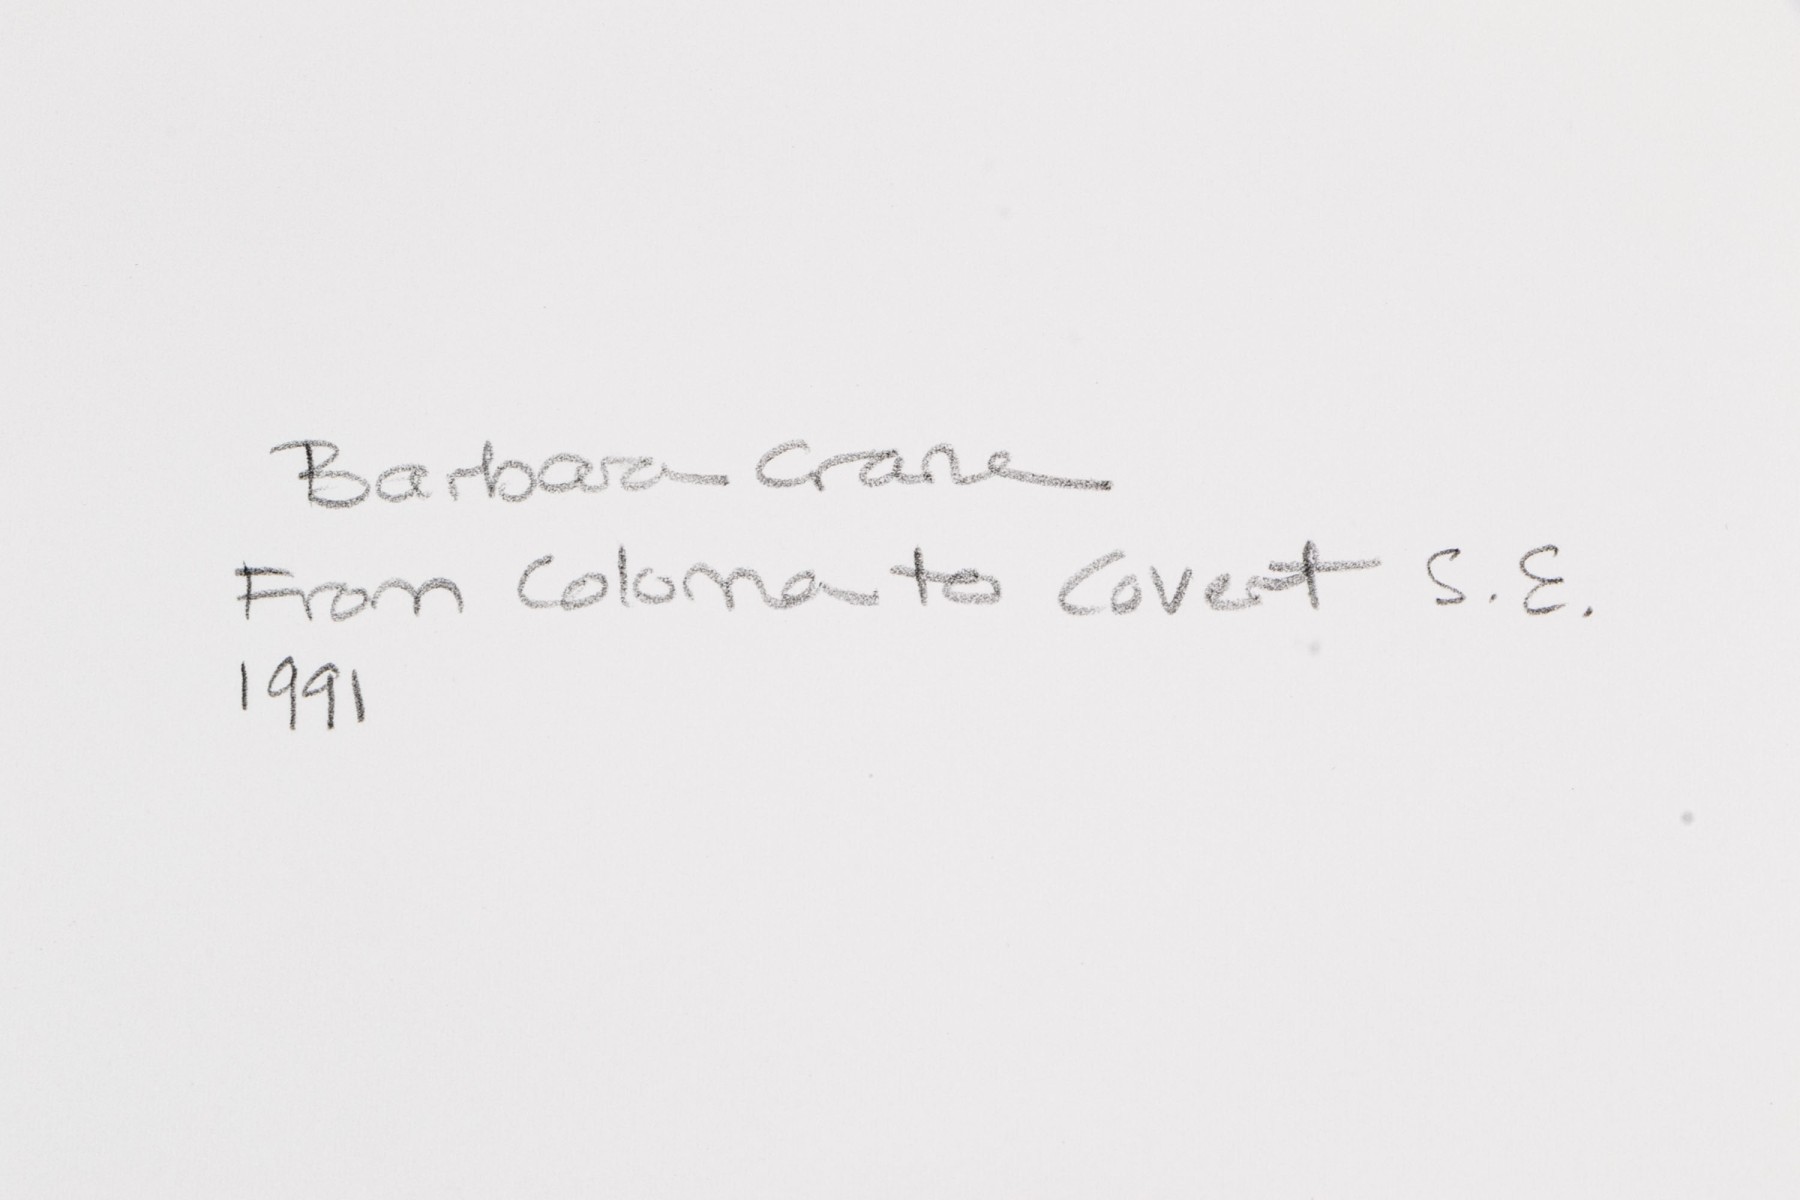 Barbara Crane
From Coloma to Covert S.E.
1991